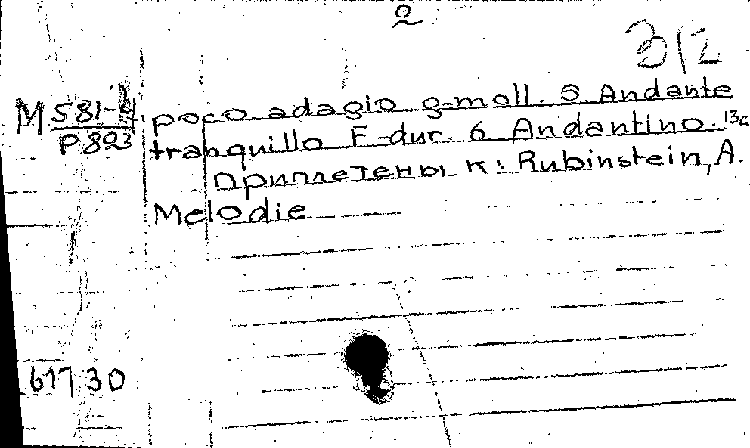 2
3/2
M 581-
P 893
poco adagio g-moll. 5 Andante
tranquillo F-dur. 6 Andantino.
Приплетены к: Rubinstein, A.
Melodie
61730